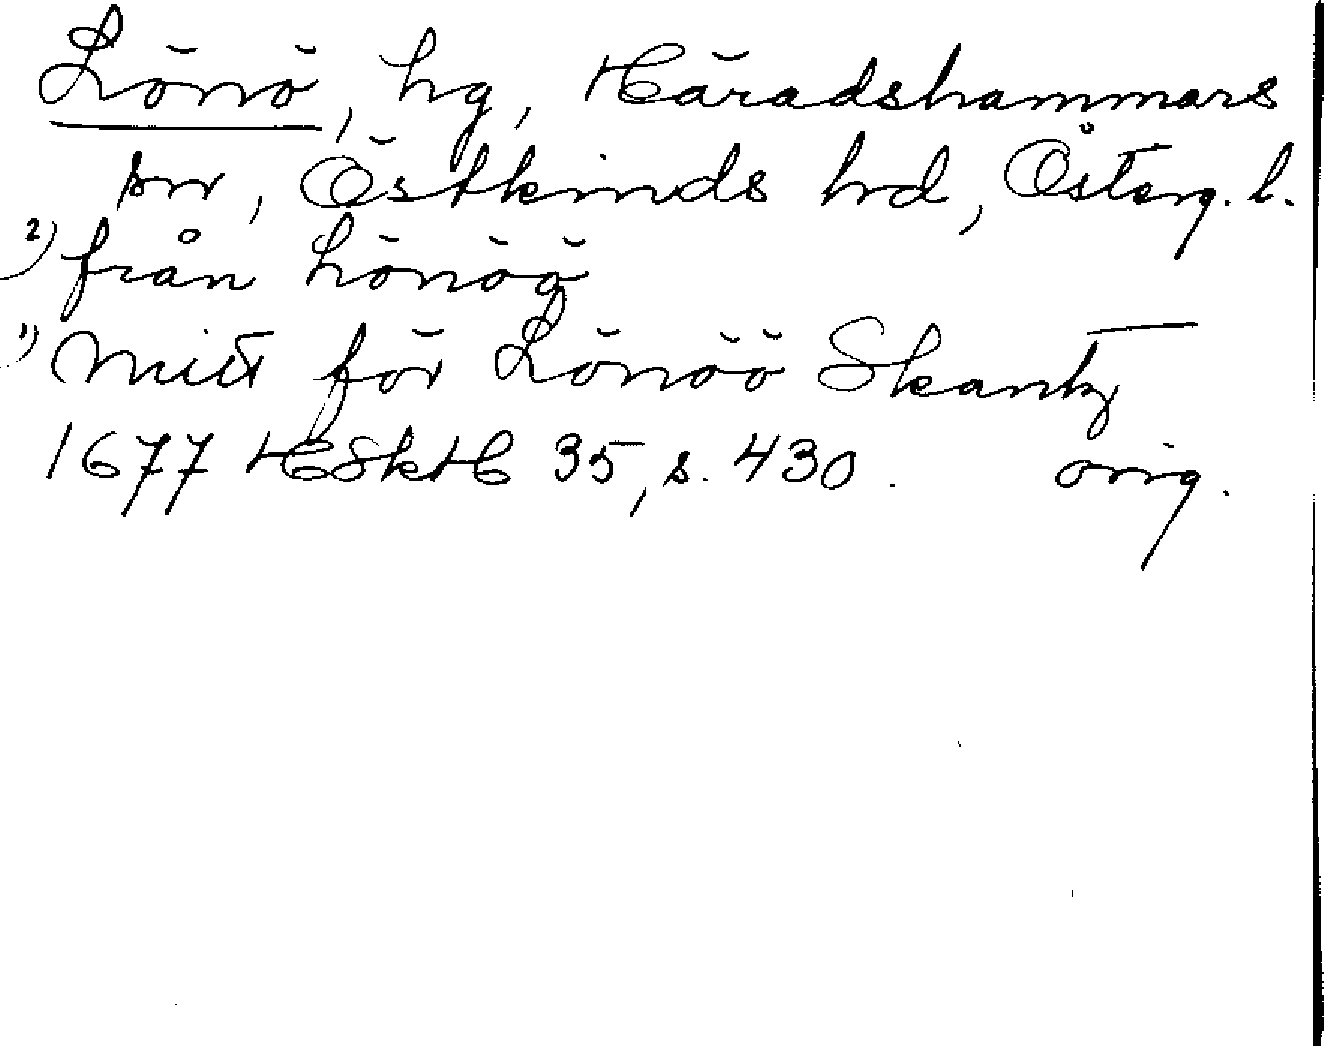 Lönö, hg, Häradshammars
sn, Östkinds hrd, Österg. l.
2) från Lönöö
1) Mitt för Lönöö Skantz
1677 HSkH 35, s. 430. orig.